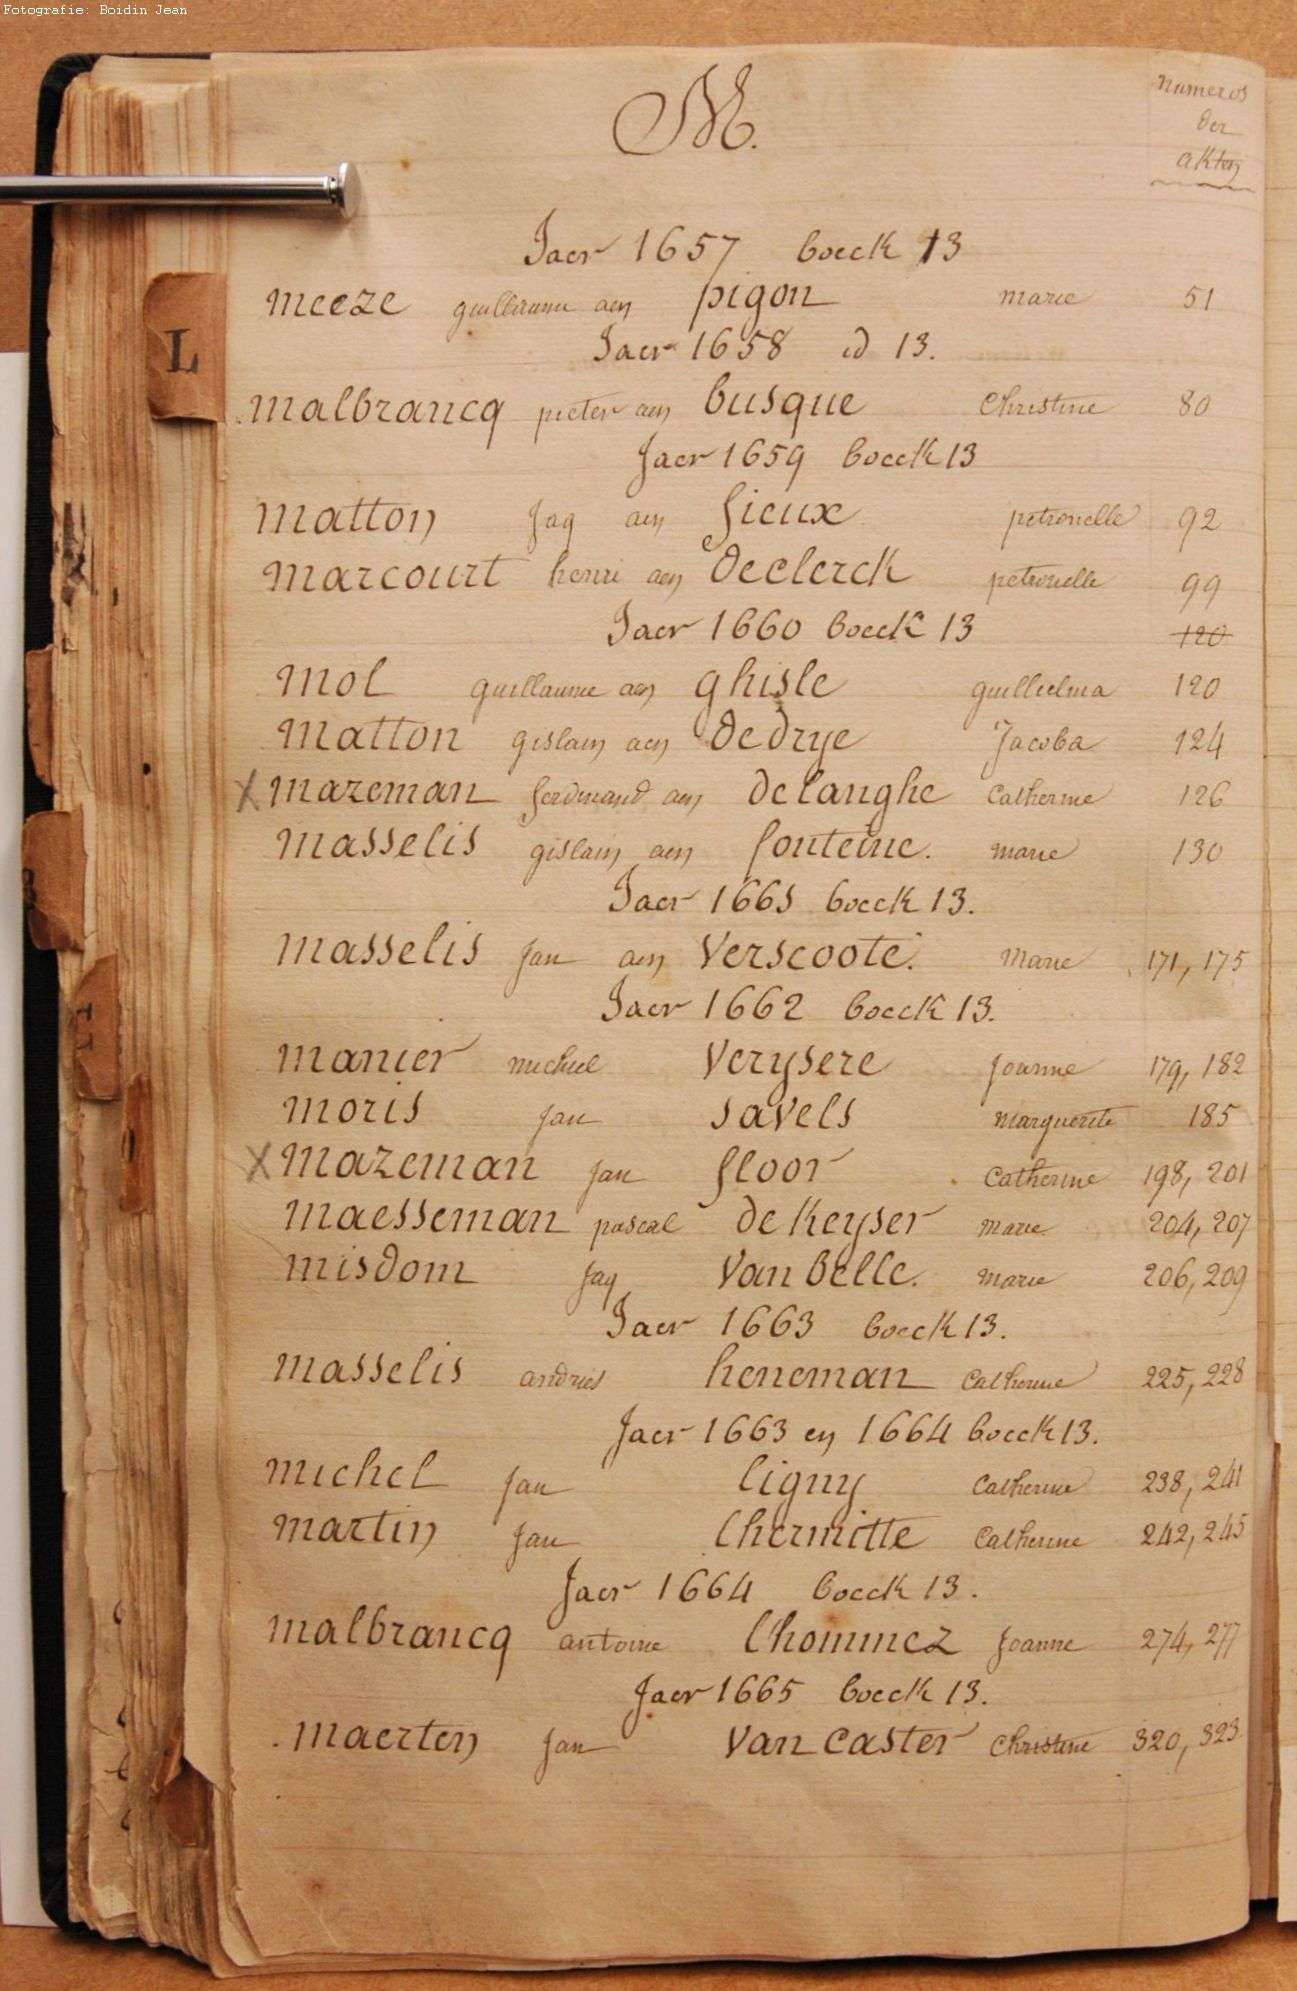 Fotografie: Boidin Jean
M.
numeros
der
akten
Jaer 1657 boeck 13
meeze guillaume aen pigon marie 51
Jaer 1658 id 13.
malbrancq pieter aen busque Christine 80
Jaer 1659 boeck 13
matton Jaq aen fieux petronelle 92
marcourt henri aen declerck petronelle 99
Jaer 1660 boeck 13 120
mol guillaume aen ghisle guillielma 120
matton gislain aen dedrye Jacoba 124
X mazeman ferdinand aen delanghe Catherine 126
masselis gislain aen fonteine. marie 130
Jaer 1661 boeck 13.
masselis Jan aen Verscoote. Marie 171, 175
Jaer 1662 boeck 13.
manier michiel Verysere Joanne 179, 182
moris Jan savels marguerite 185
X mazeman Jan floor Catherine 198, 201
maesseman pascal de Keyser marie 204, 207
misdom Jaq Van belle. marie 206, 209
Jaer 1663 boeck 13.
masselis andries heneman Catherine 225, 228
Jaer 1663 en 1664 boeck 13.
michel Jan ligny Catherine 238, 241
martin Jan lhermitte Catherine 242, 245
Jaer 1664 boeck 13.
malbrancq antoine lhommez Joanne 274, 277
Jaer 1665 boeck 13.
maerten Jan Van Caster Christine 320, 323
L